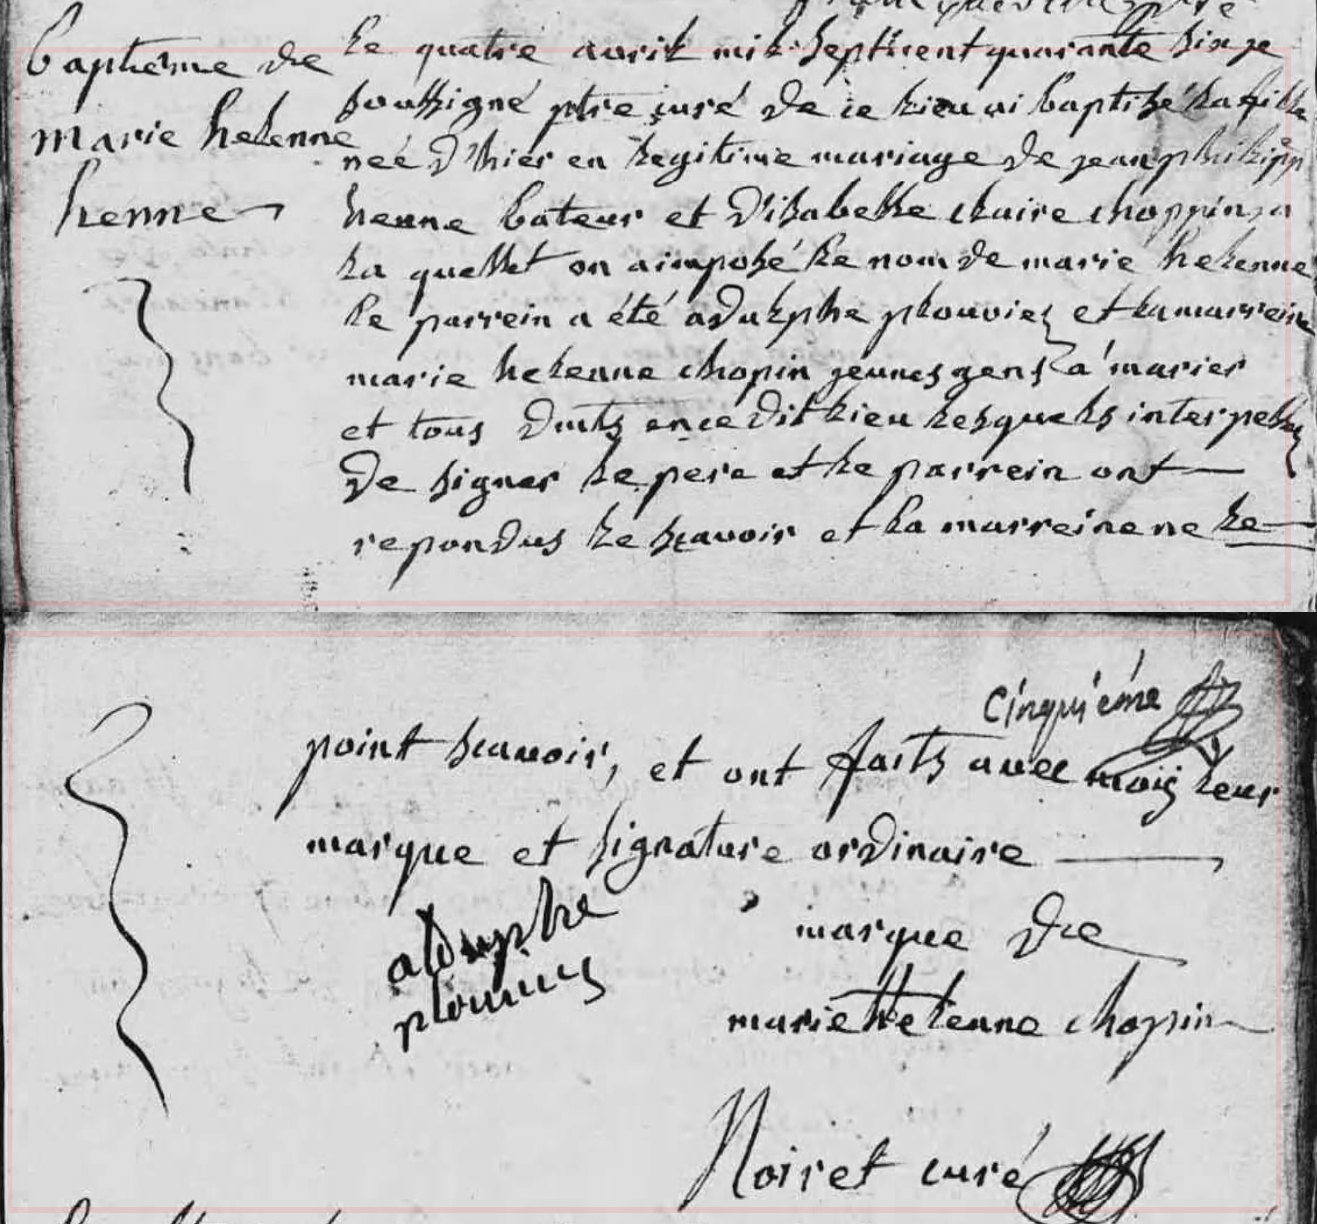 baptême de
marie helenne
henne
Le quatre avril mil Septcent quarante Six je
soussigné ptre curé de ce lieu ai baptisé la fille
neé d'hier en legitime mariage de jean philipp
henne bateur et d'isabelle claire choppin, a
la quellet on a imposé le nom de marie helenne
le parrein a été adulphe plouviez et la marreine
marie helenne chopin jeunes gens a marier
et tous duits en ce dit lieu lesquels interpellez
de signer le pere et le parrein ont
repondus le scavoir et la marreine ne le
Cinquiéme
point scavoir, et ont faits avec moij leur
marque et signature ordinaire
adulphe
plouvies
marque de
marie helenne chopin
Noiret curé